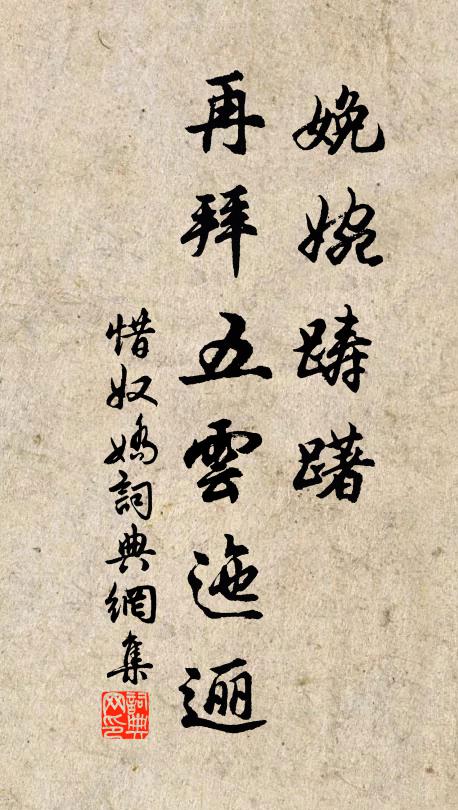 娩婉躊躇
再拜五雲迤逦
惜奴嬌詞典網集
詞典
网印